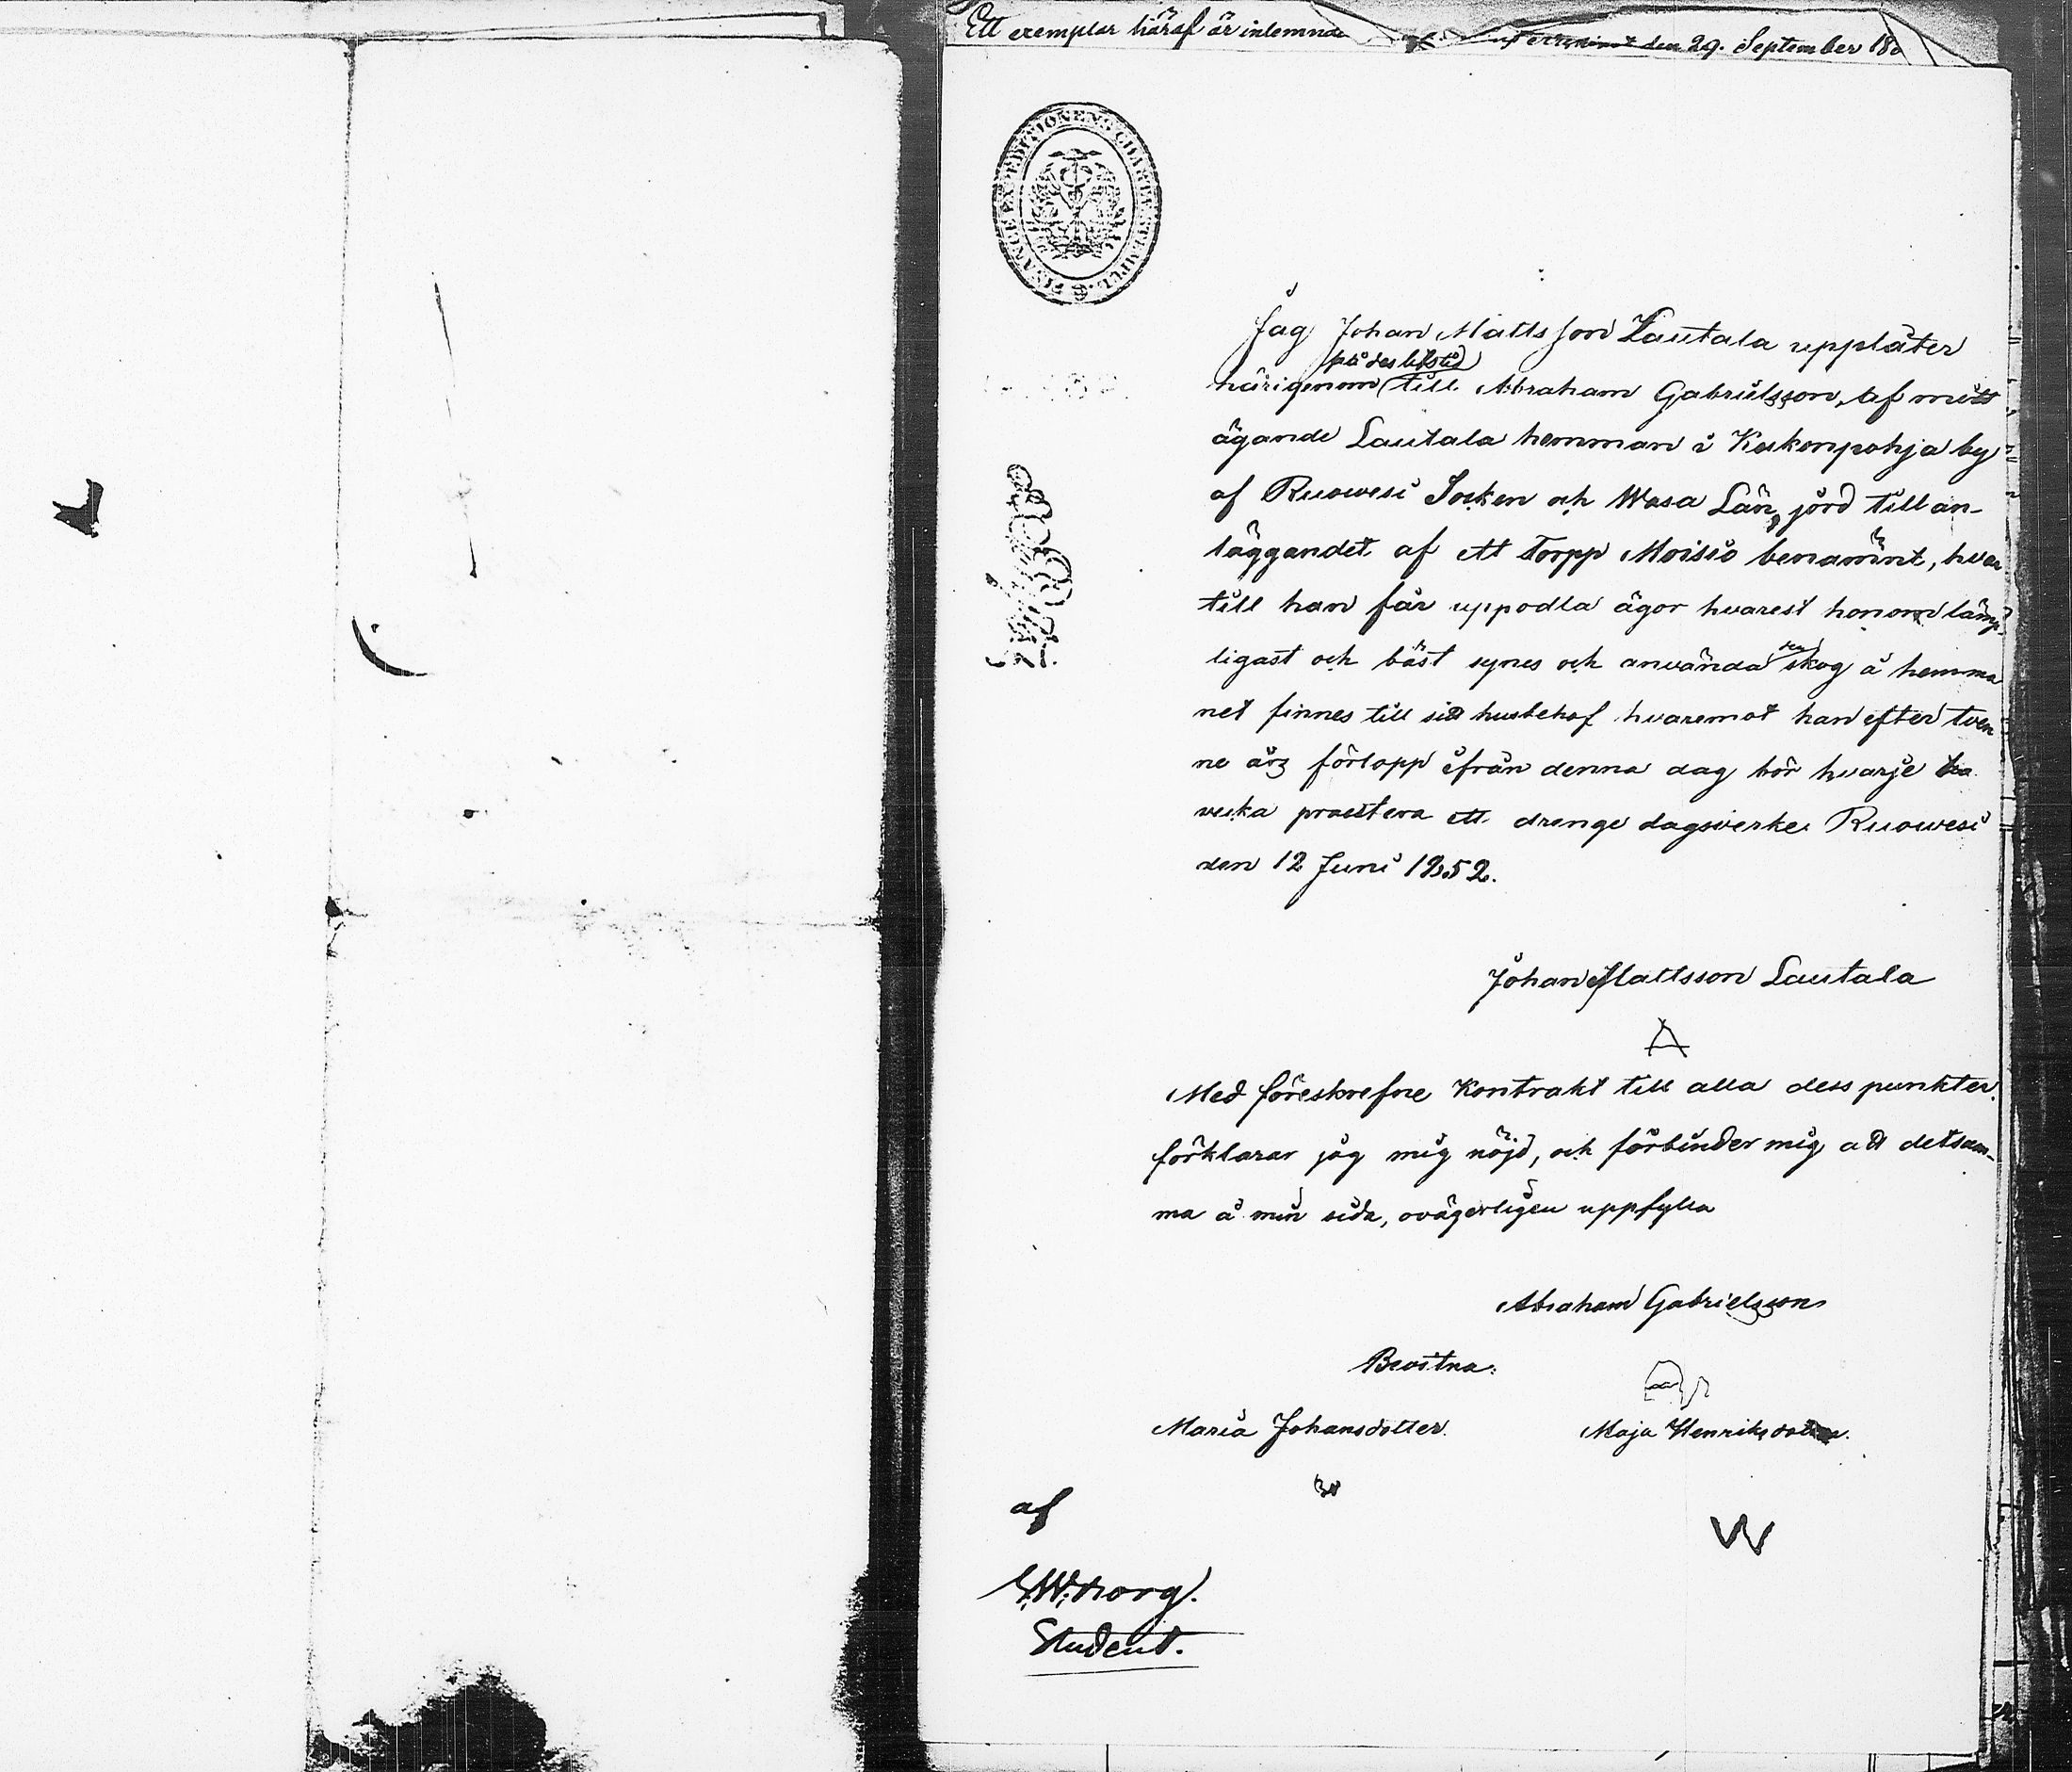 Ett exemplar häraf är inlemnad
den 29. September 18
FINANCE EXPEDITIONENS CHARTÆ STEMPEL
Jag Johan Mattsson Lautala upplåter
på des lifstid
härigenom till Abraham Gabrielsson, af mitt
ägande Lautala hemman i Kukonpohja by
af Ruowesi Socken och Wasa Län, jord till an-
läggandet af ett Torpp Moisio benämnt, hvar
till han får uppodla ägor hvarest honom lämp-
ligast och bäst synes och använda skog å hemma
net finnes till sitt husbehof hvaremot han efter tven
ne års förlopp ifrån denna dag bör hvarje
vecka praestera ett drenge dagsverke. Ruowesi
den 12 Juni 1852.
Johan Mattsson Lautala
Med föreskrefne Kontrakt till alla dess punkter
förklarar jag mig nöjd, och förbinder mig att detsam-
ma å min sida, ovägerligen uppfylla
Abraham Gabrielsson
Bevitna:
Maria Johansdotter.
Maja Henriksdotter.
af
Student.